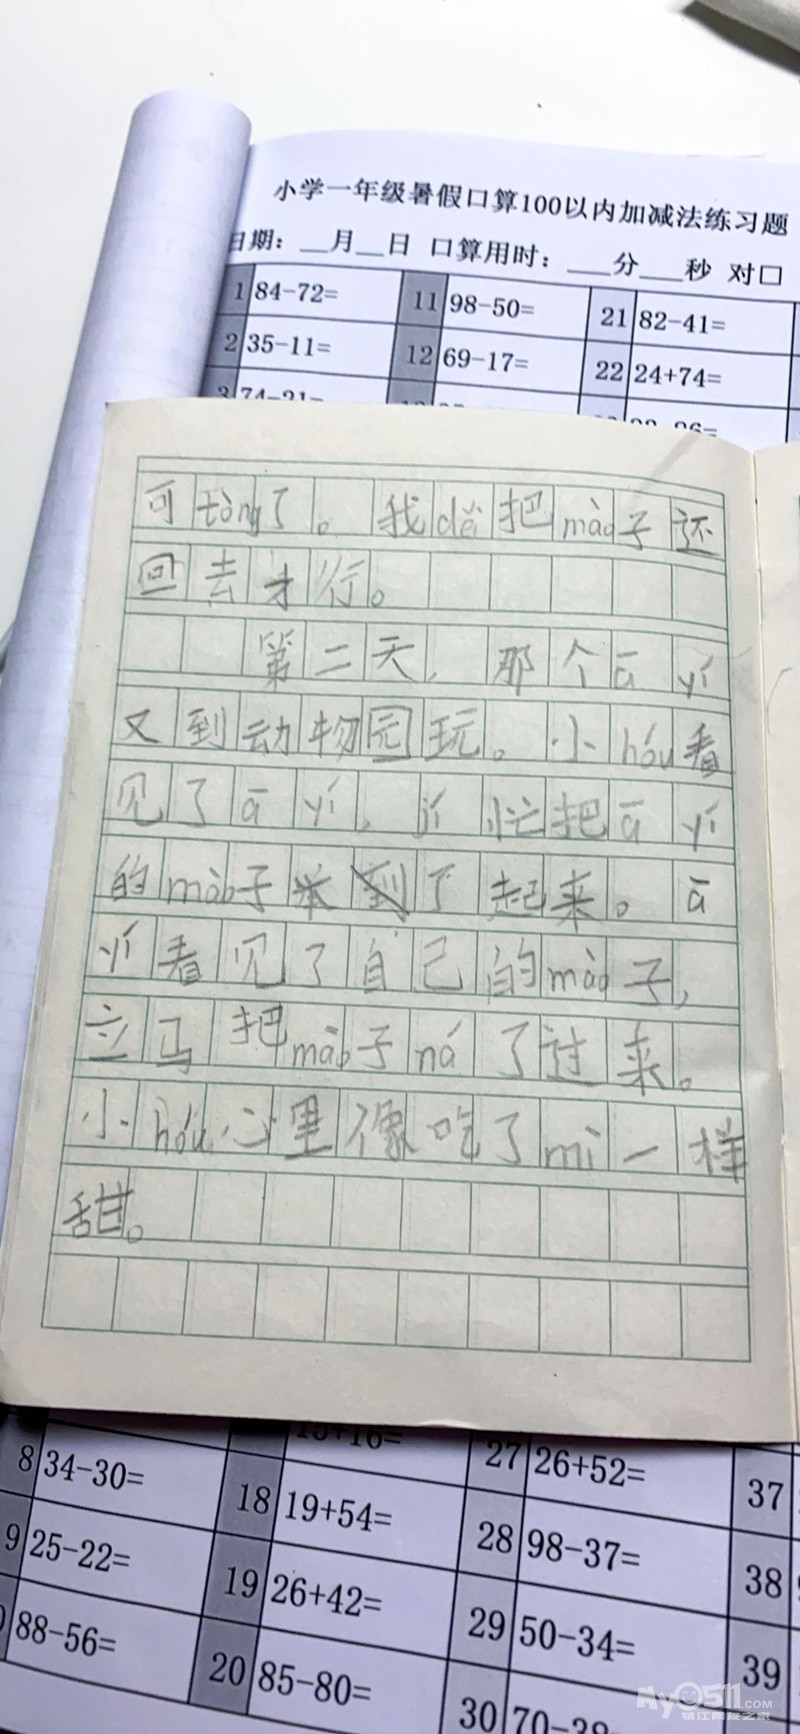 小学一年级暑假口算100以内加减法练习题
日期：__月__日 口算用时：___分___秒 对口
1 84-72= 11 98-50= 21 82-41=
2 35-11= 12 69-17= 22 24+74=
3 74-21=
可tòng了。我děi把mào子还
回去才行。
第二天，那个ā yí
又到动物园玩。小hóu看
见了ā yí，jí忙把ā yí
的mào子举到了起来。ā
yí看见了自己的mào子，
立马把mào子ná了过来。
小hóu心里像吃了mì一样
甜。
15+16=
8 34-30= 18 19+54= 27 26+52= 37
9 25-22= 19 26+42= 28 98-37= 38
88-56= 20 85-80= 29 50-34= 39
30 70-38=
My0511.com
镇江网友之家